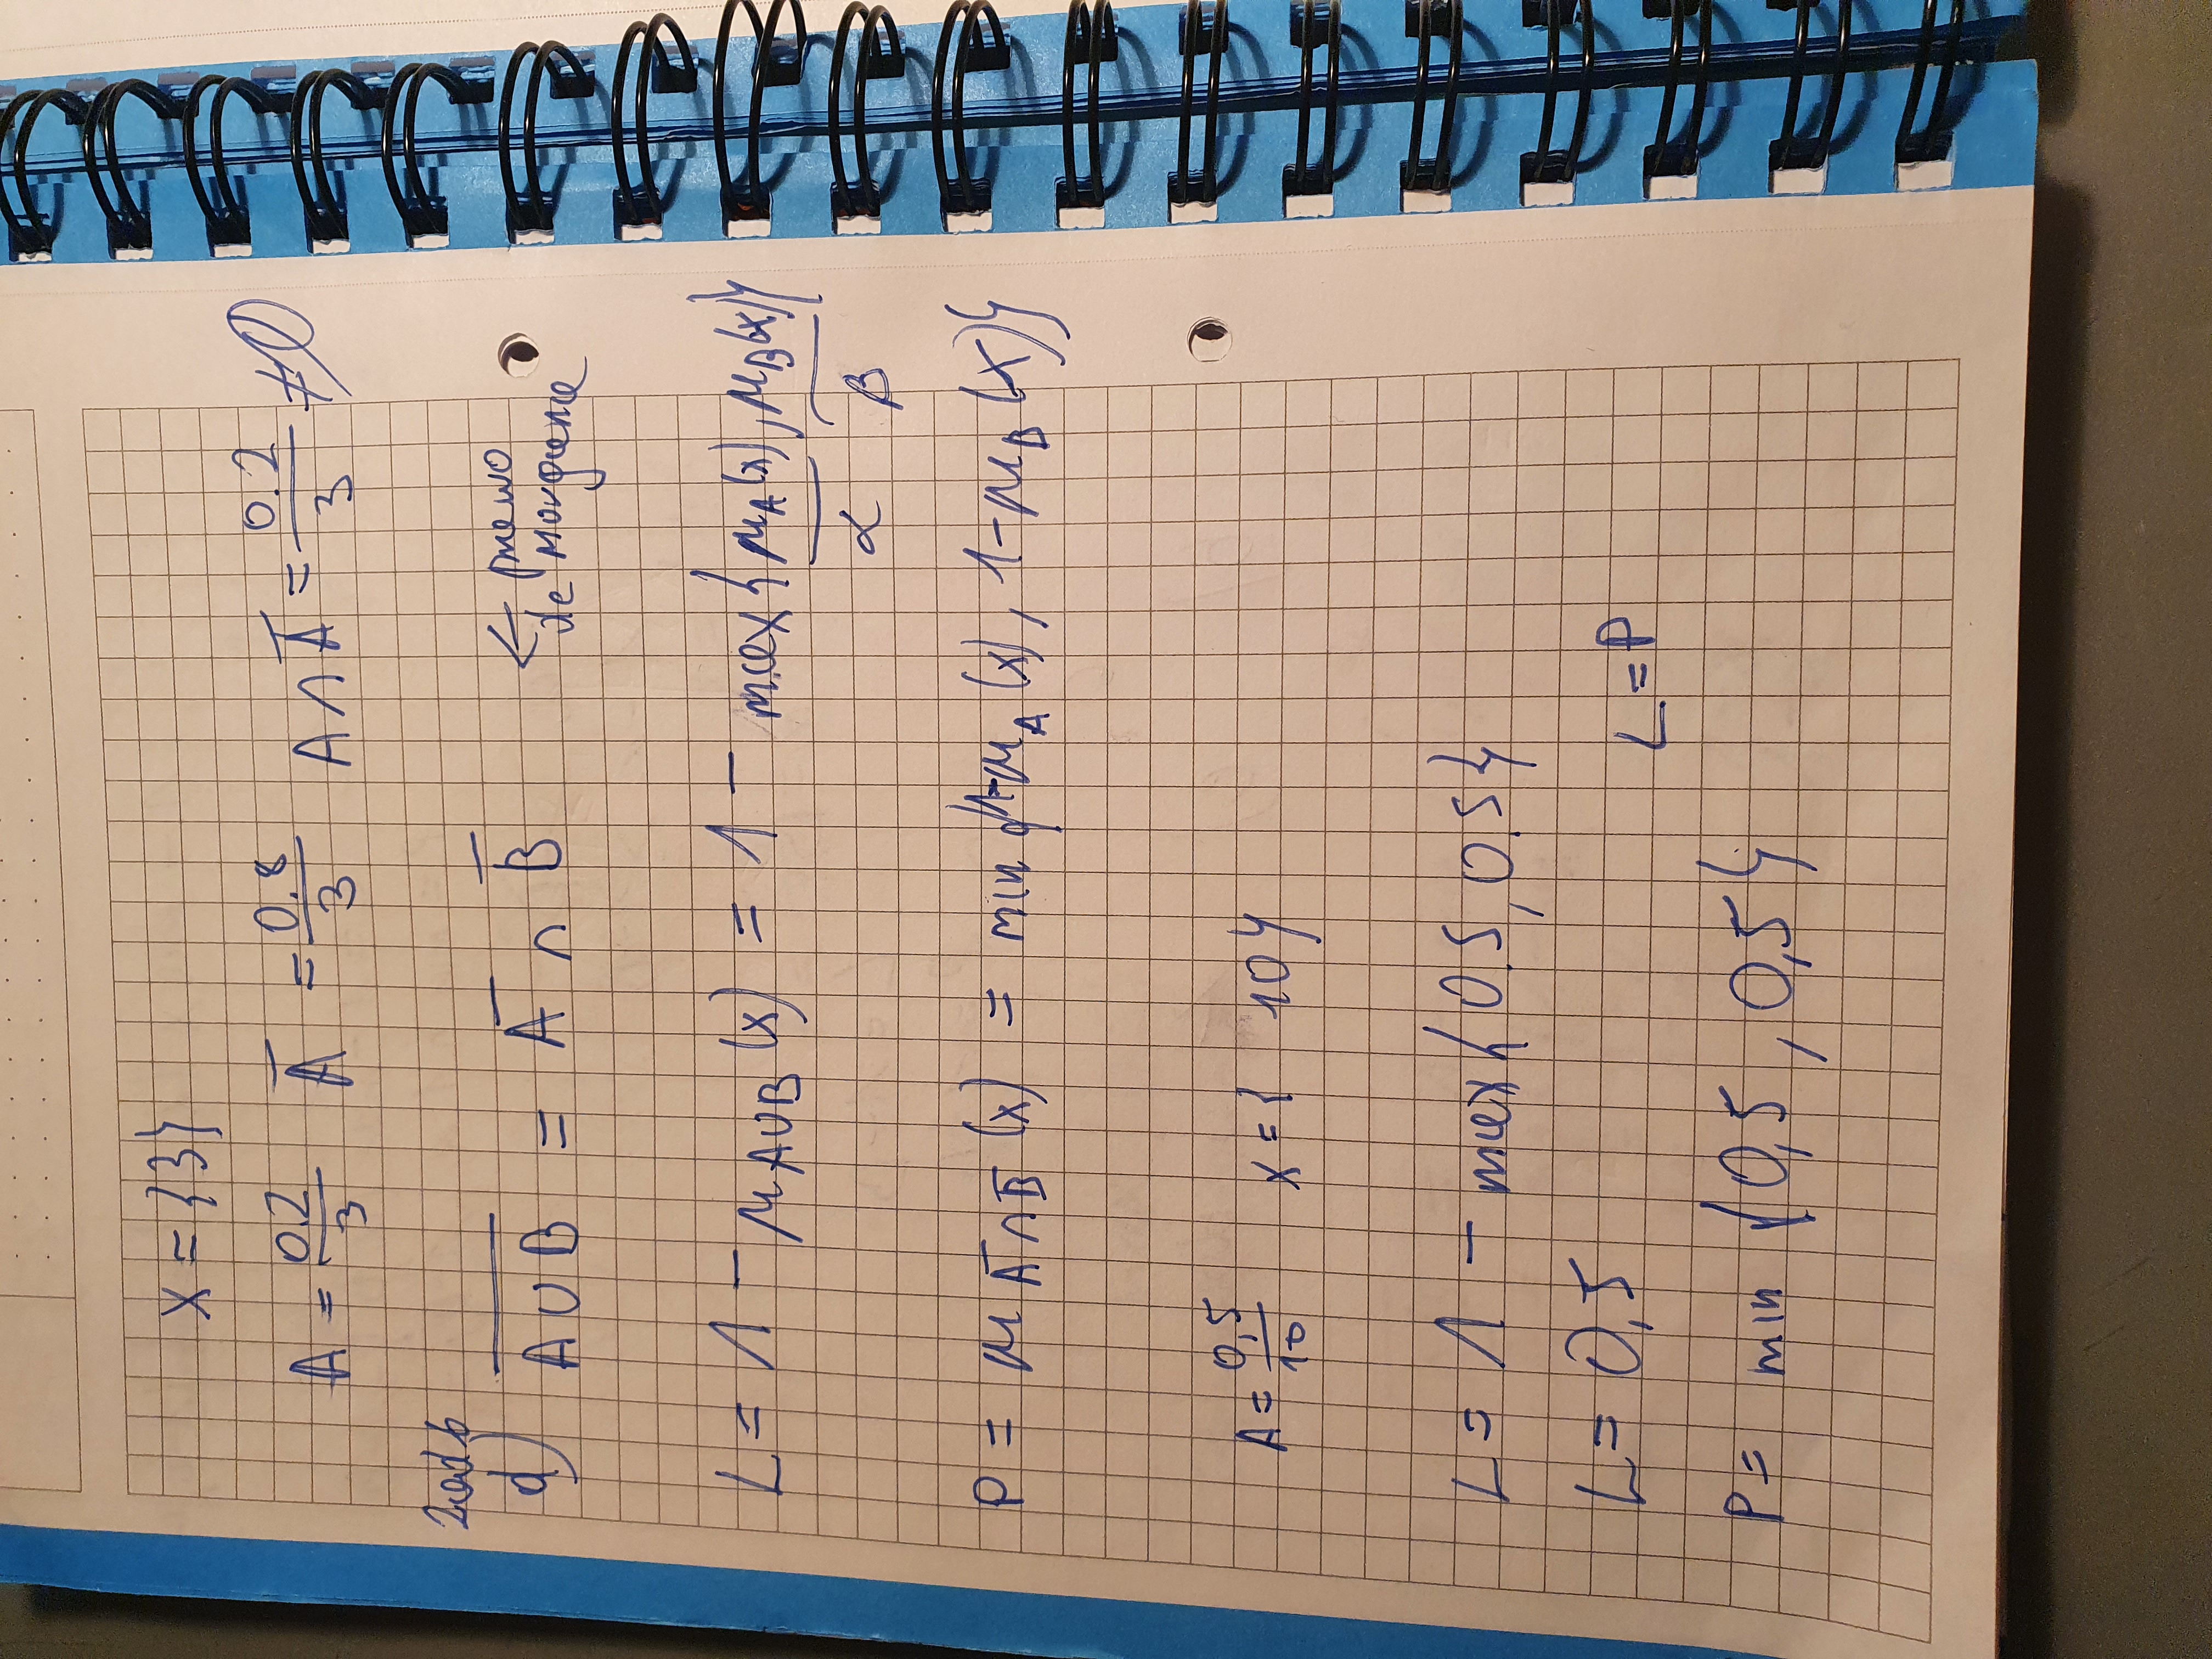 X = {3}
A = 0.2/3 A̅ = 0.8/3 A∩A̅ = 0.2/3 ≠ ∅
Zad 6
d) \overline{A∪B} = A̅ ∩ B̅ ← prawo
de Morgana
L = 1 - μ_{A∪B}(x) = 1 - max{μ_A(x), μ_B(x)}
α β
P = μ_{A̅∩B̅}(x) = min{1-μ_A(x), 1-μ_B(x)}
A = 0,5/10 X = { 10}
L = 1 - max{0.5, 0.5}
L = 0,5
L = P
P = min {0,5, 0,5}